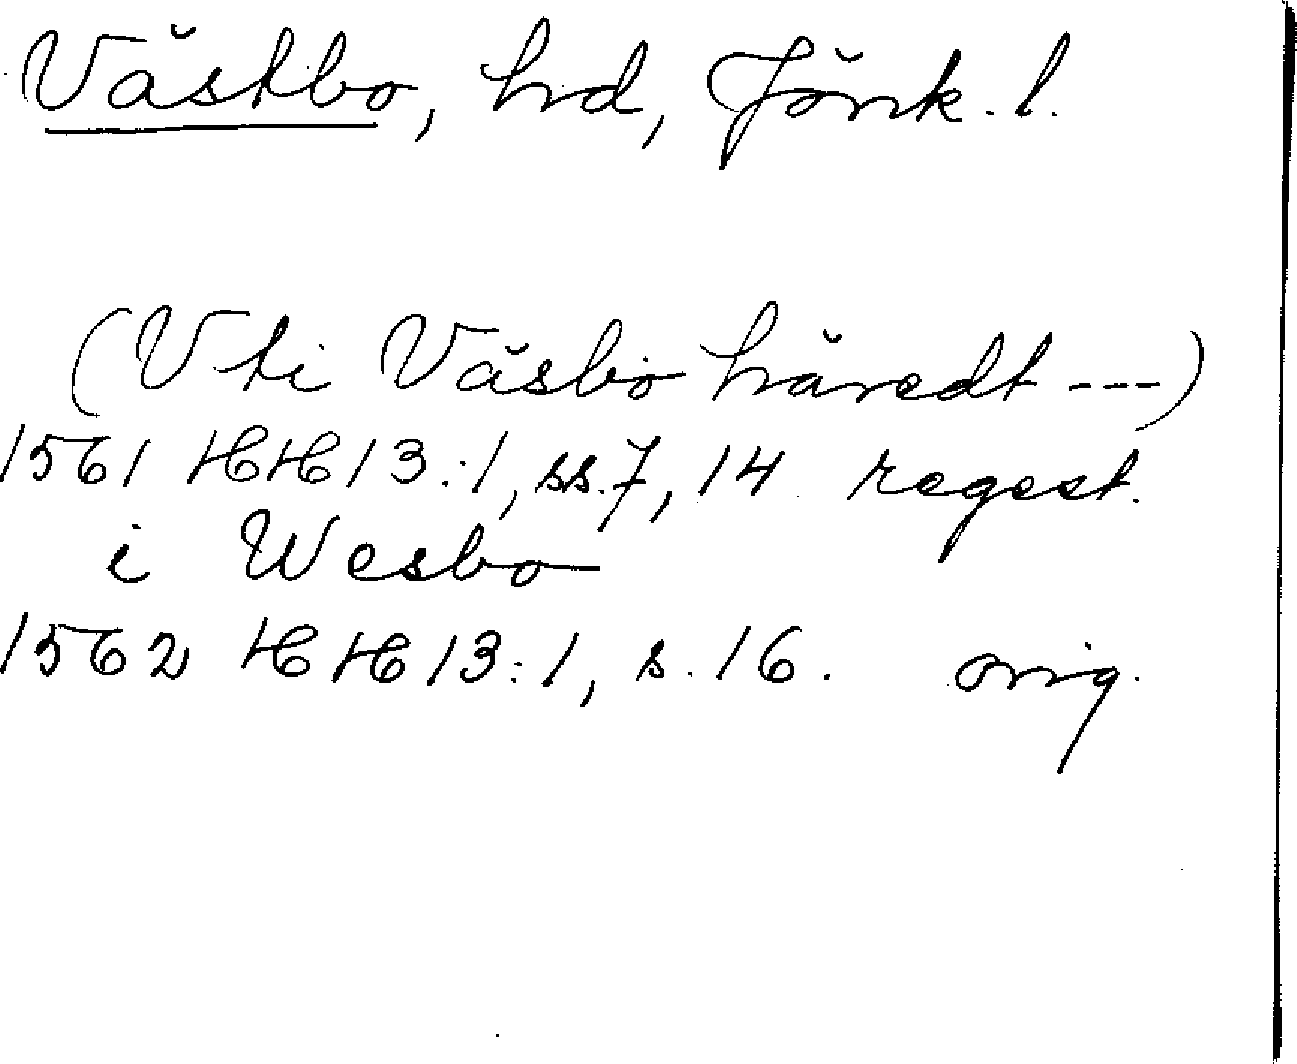 Västbo, hd, Jönk. l.
(Vti Väsbo häredt ---)
1561 HH 13:1, ss. 7, 14 regest.
i Wesbo
1562 HH 13:1, s. 16. orig.